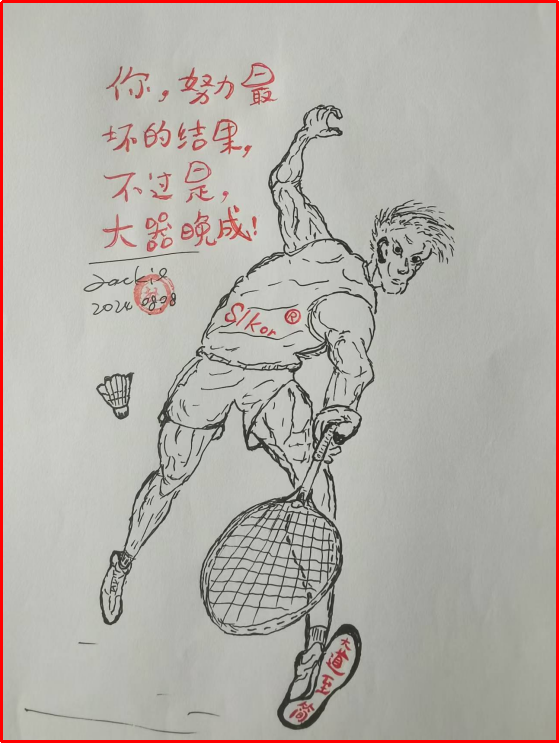 你，努力最
坏的结果，
不过是，
大器晚成！
Jackie
20240808
Slkor®
大道至简